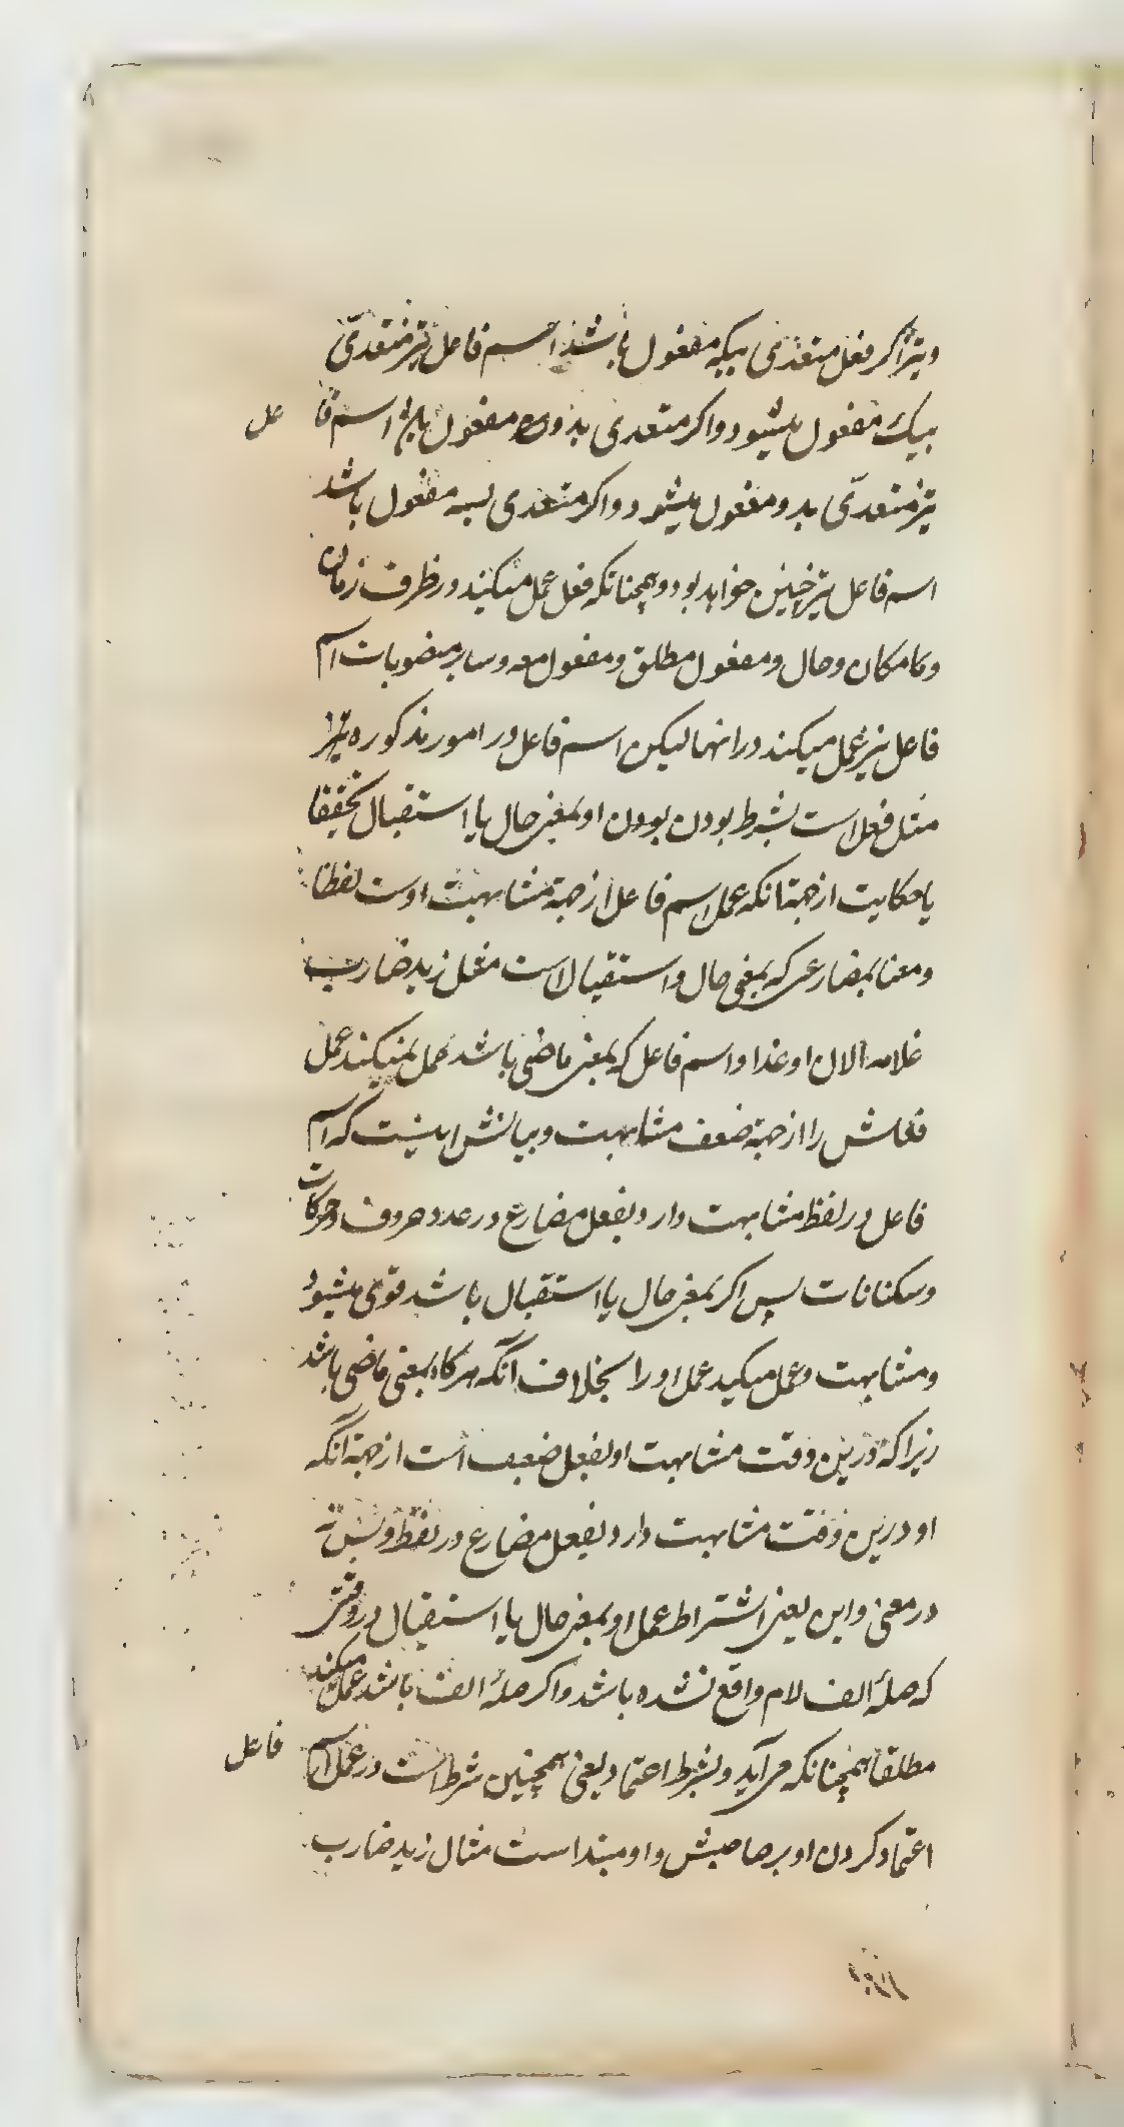 و نیز اگر فعل متعدی بیکه مفعول باشد اسم فاعل نیز متعدّی
بیک مفعول میشود و اکر متعدی بدو مفعول باشد اسم فا عل
نیز متعدّی بدو مفعول میشود و اکر متعدی بسه مفعول باشد
اسم فاعل نیز چنین خواهد بود و همچنانکه فعل عمل میکند در ظرف زمان
و مکان و حال و مفعول مطلق و مفعول معه و سایر منصوبات اسم
فاعل نیز عمل میکند در انها لیکن اسم فاعل در امور مذکوره نیز
مثل فعل است بشرط بودن بودن او بمعنی حال یا استقبال تحقیقا
یا حکایت از جهة انکه عمل اسم فاعل از جهة مشابهت اوست لفظا
و معنا بمضارعی که بمعنی حال و استقبال است مثل زید ضارب
غلامه الان او غدا و اسم فاعل که بمعنی ماضی باشد عمل نمیکند عمل
فعلش را از جهة ضعف مشابهت و بیانش اینست که اسم
فاعل در لفظ مشابهت دارد بفعل مضارع در عدد حروف و حرکات
و سکنانات پس اکر بمعنی حال یا استقبال باشد قوی میشود
و مشابهت و عمل میکند عمل او را بخلاف آنکه هرکاه بمعنی ماضی باشد
زیرا که درین وقت مشابهت او بفعل ضعیف است از جهة انکه
او درین وقت مشابهت دارد بفعل مضارع در لفظ و بس نه
در معنی و این یعنی اشتراط عمل او بمعنی حال یا استقبال در وقتی
که صلهٔ الف لام واقع نشده باشد و اکر صلهٔ الف باشد عمل میکند
مطلقا همچنانکه می آید و بشرط اعتماد یعنی همچنین شرط است در عمل اسم فاعل
اعتماد کردن او بر صاحبش و او مبتدا است مثال زید ضارب